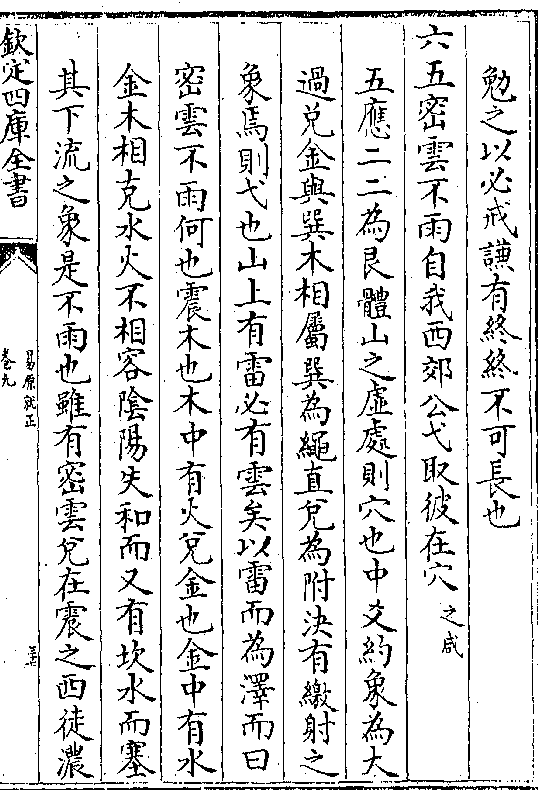 勉之以必戒謙有終終不可長也
六五密雲不雨自我西郊公弋取彼在穴之咸
五應二二為艮體山之虛處則穴也中爻約象為大
過兌金與巽木相屬巽為繩直兌為附決有繳射之
象焉則弋也山上有雷必有雲矣以雷而為澤而曰
密雲不雨何也震木也木中有火兌金也金中有水
金木相克水火不相容陰陽失和而又有坎水而塞
其下流之象是不雨也雖有密雲兌在震之西徒濃
欽定四庫全書
易原就正
卷九